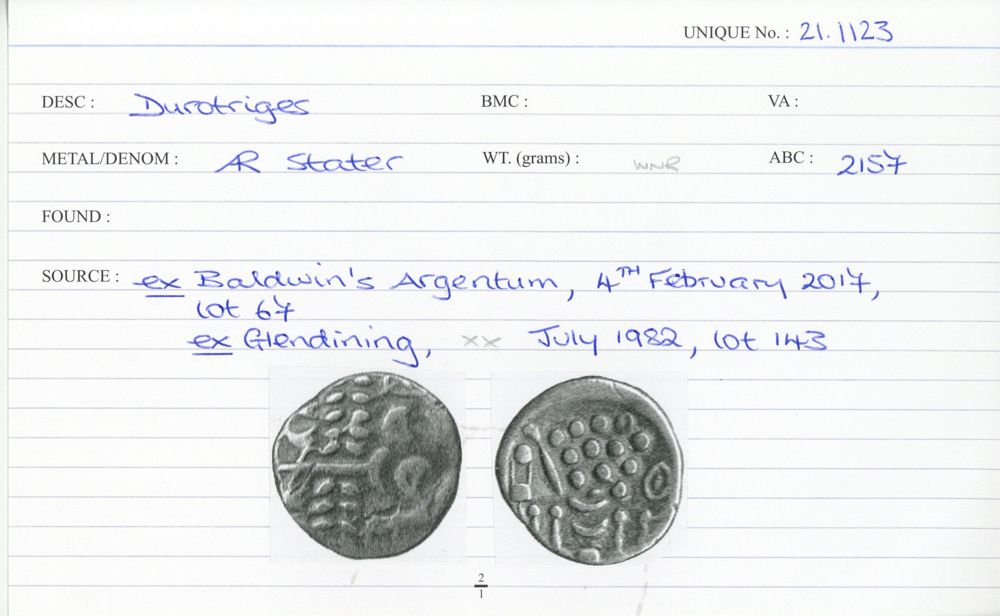 UNIQUE No. : 21.1123
DESC : Durotriges BMC : VA :
METAL/DENOM : AR Stater WT. (grams) : WNR ABC : 2157
FOUND :
SOURCE : ex Baldwin's Argentum, 4TH February 2017,
lot 67
ex Glendining, xx July 1982, lot 143
2
1